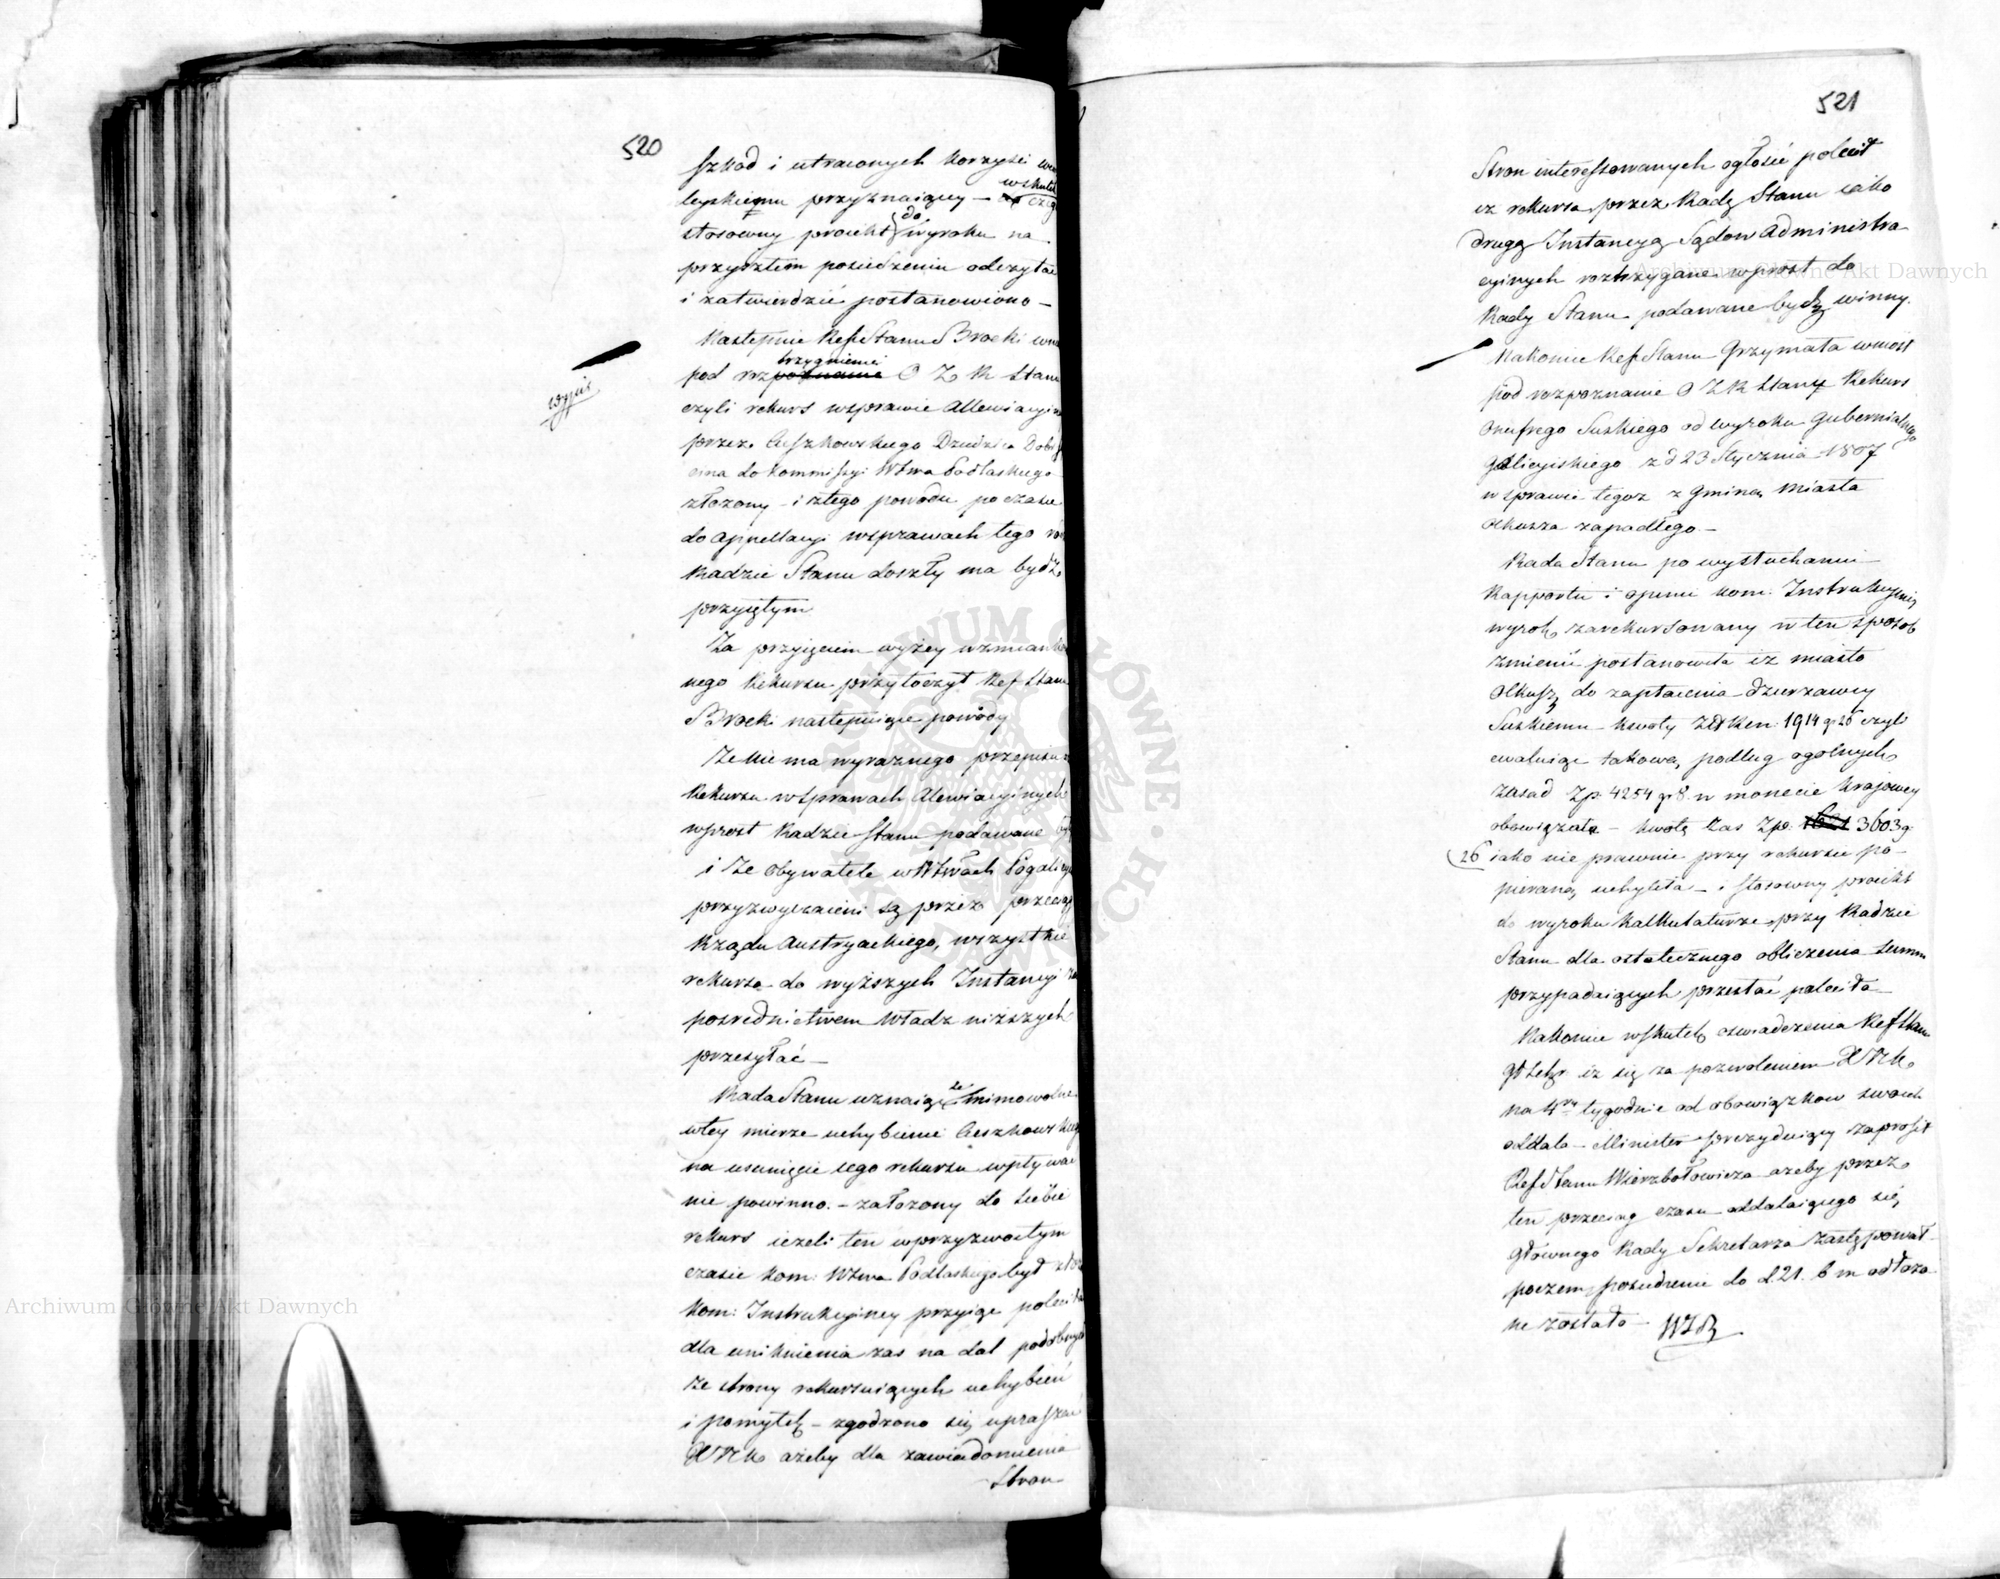 520
szkod i utraconych korzyści
leyskiemu przyznaiący — wskutek czego
stosowny proiekt do wyroku na
przyszłem posiedzeniu odczytać
i zatwierdzić postanowiono —
Następnie Ref Stanu Brocki
pod rozstrzygnienie O Z R Stanu
wypis
czyli rekurs wsprawie Allewiacyi
przez Cieszkowskiego Dziedzica Dobr
do Kommissyi Wtwa Podlaskiego
złożony — i ztego powodu po czasie
do Appellacyi wsprawach tego
Radzie Stanu doszły ma bydź
przyiętym
Za przyięciem wyżey wzmianko
nego Rekursu przytoczył Ref Stanu
Brocki następuiące powody
Że nie ma wyraznego przepisu
Rekursa wsprawach Alewiacyinych
wprost Radzie Stanu podawane
i że obywatele w Wtwach Pogalicyi
przyzwyczaieni są przez przeciąg
Rządu Austryackiego, wszystkie
rekursa do wyższych Instancyi za
posrednictwem Władz niższych
przesyłać —
Rada Stanu uznaiąc że mimowolne
wtey mierze uchybienie Cieszkowskiego
na usunięcie iego rekursu wpływać
nie powinno. — założony do siebie
rekurs ieżeli ten wprzyzwoitym
czasie Kom: Wtwa Podlaskiego był
Kom: Instrukcyiney przyiąć poleciła
dla uniknienia zas na dal podobnych
ze strony rekursuiących uchybień
i pomyłek — zgodzono się upraszać
XNK ażeby dla zawiadomienia
— Stron
521
Stron interessowanych ogłosić polecił
iż rekursa przez Radę Stanu iako
drugą Instancyą Sądow Administra
cyinych roztrzygane wprost do
Rady Stanu podawane bydź winny.
Nakoniec Ref Stanu Grzymała wniosł
pod rozpoznanie O Z R Stanu Rekurs
Onufrego Suskiego od wyroku Gubernialnego
Galicyiskiego z d 23 Stycznia 1807
w sprawie tegoż z Gminą Miasta
Olkusza zapadłego —
Rada Stanu po wysłuchaniu
Rapportu i opinii Kom: Instrukcyiney
wyrok zarekursowany w ten sposob
zmienić postanowiła iż miasto
Olkusz do zapłacenia dzierzawcy
Suskiemu kwoty ZłR en: 1914 gr 26 czyli
ewaluiąc takową podług ogolnych
zasad Zp. 4254 gr 8. w monecie krajowey
obowiązała — kwotę zas Zpo. 3603 g
26 iako nie prawnie przy rekursie po-
pieraną uchyliła — i stosowny proiekt
do wyroku Kalkulaturze przy Radzie
Stanu dla ostatecznego obliczenia summ
przypadaiących przesłać poleciła
Nakoniec wskutek oswiadczenia Ref Stanu
Gł Sekr iż się za pozwoleniem XNK
na 4ry tygodnie od obowiązkow swoich
oddala — Minister prezyduiący zaprosił
Ref Stanu Wierzbołowicza ażeby przez
ten przeciąg czasu oddalaiącego się
Głównego Rady Sekretarza zastępował —
poczem posiedzenie do d 21. b m odłożo
ne zostało —